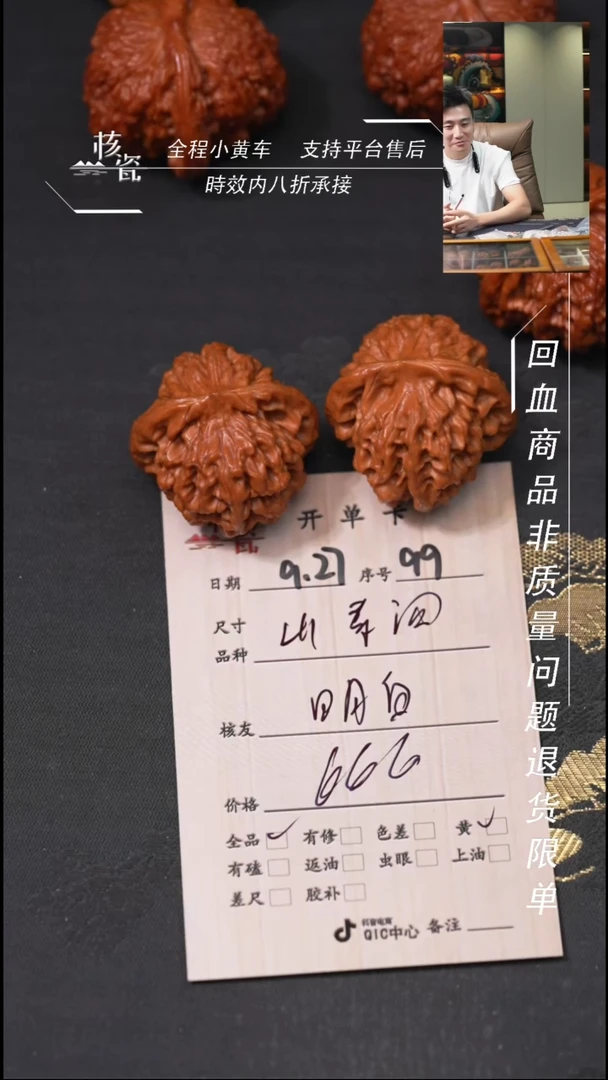 核瓷
全程小黄车 支持平台售后
時效内八折承接
回血商品非质量问题退货限单
开单卡
瓷
日期 9.27 序号 99
尺寸
品种
核友 明白
价格 666
全品 有修 色差 黄
有磕 返油 虫眼 上油
差尺 胶补
抖音电商
QIC中心 备注